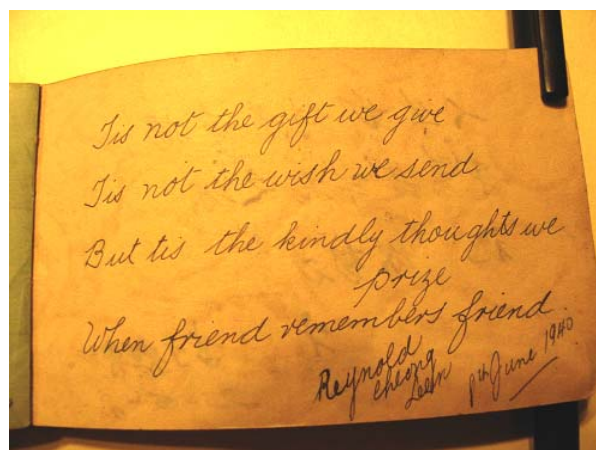 Tis not the gift we give
Tis not the wish we send
But tis the kindly thoughts we
prize
When friend remembers friend.
Reynold
Cheong
Leen
June 1940